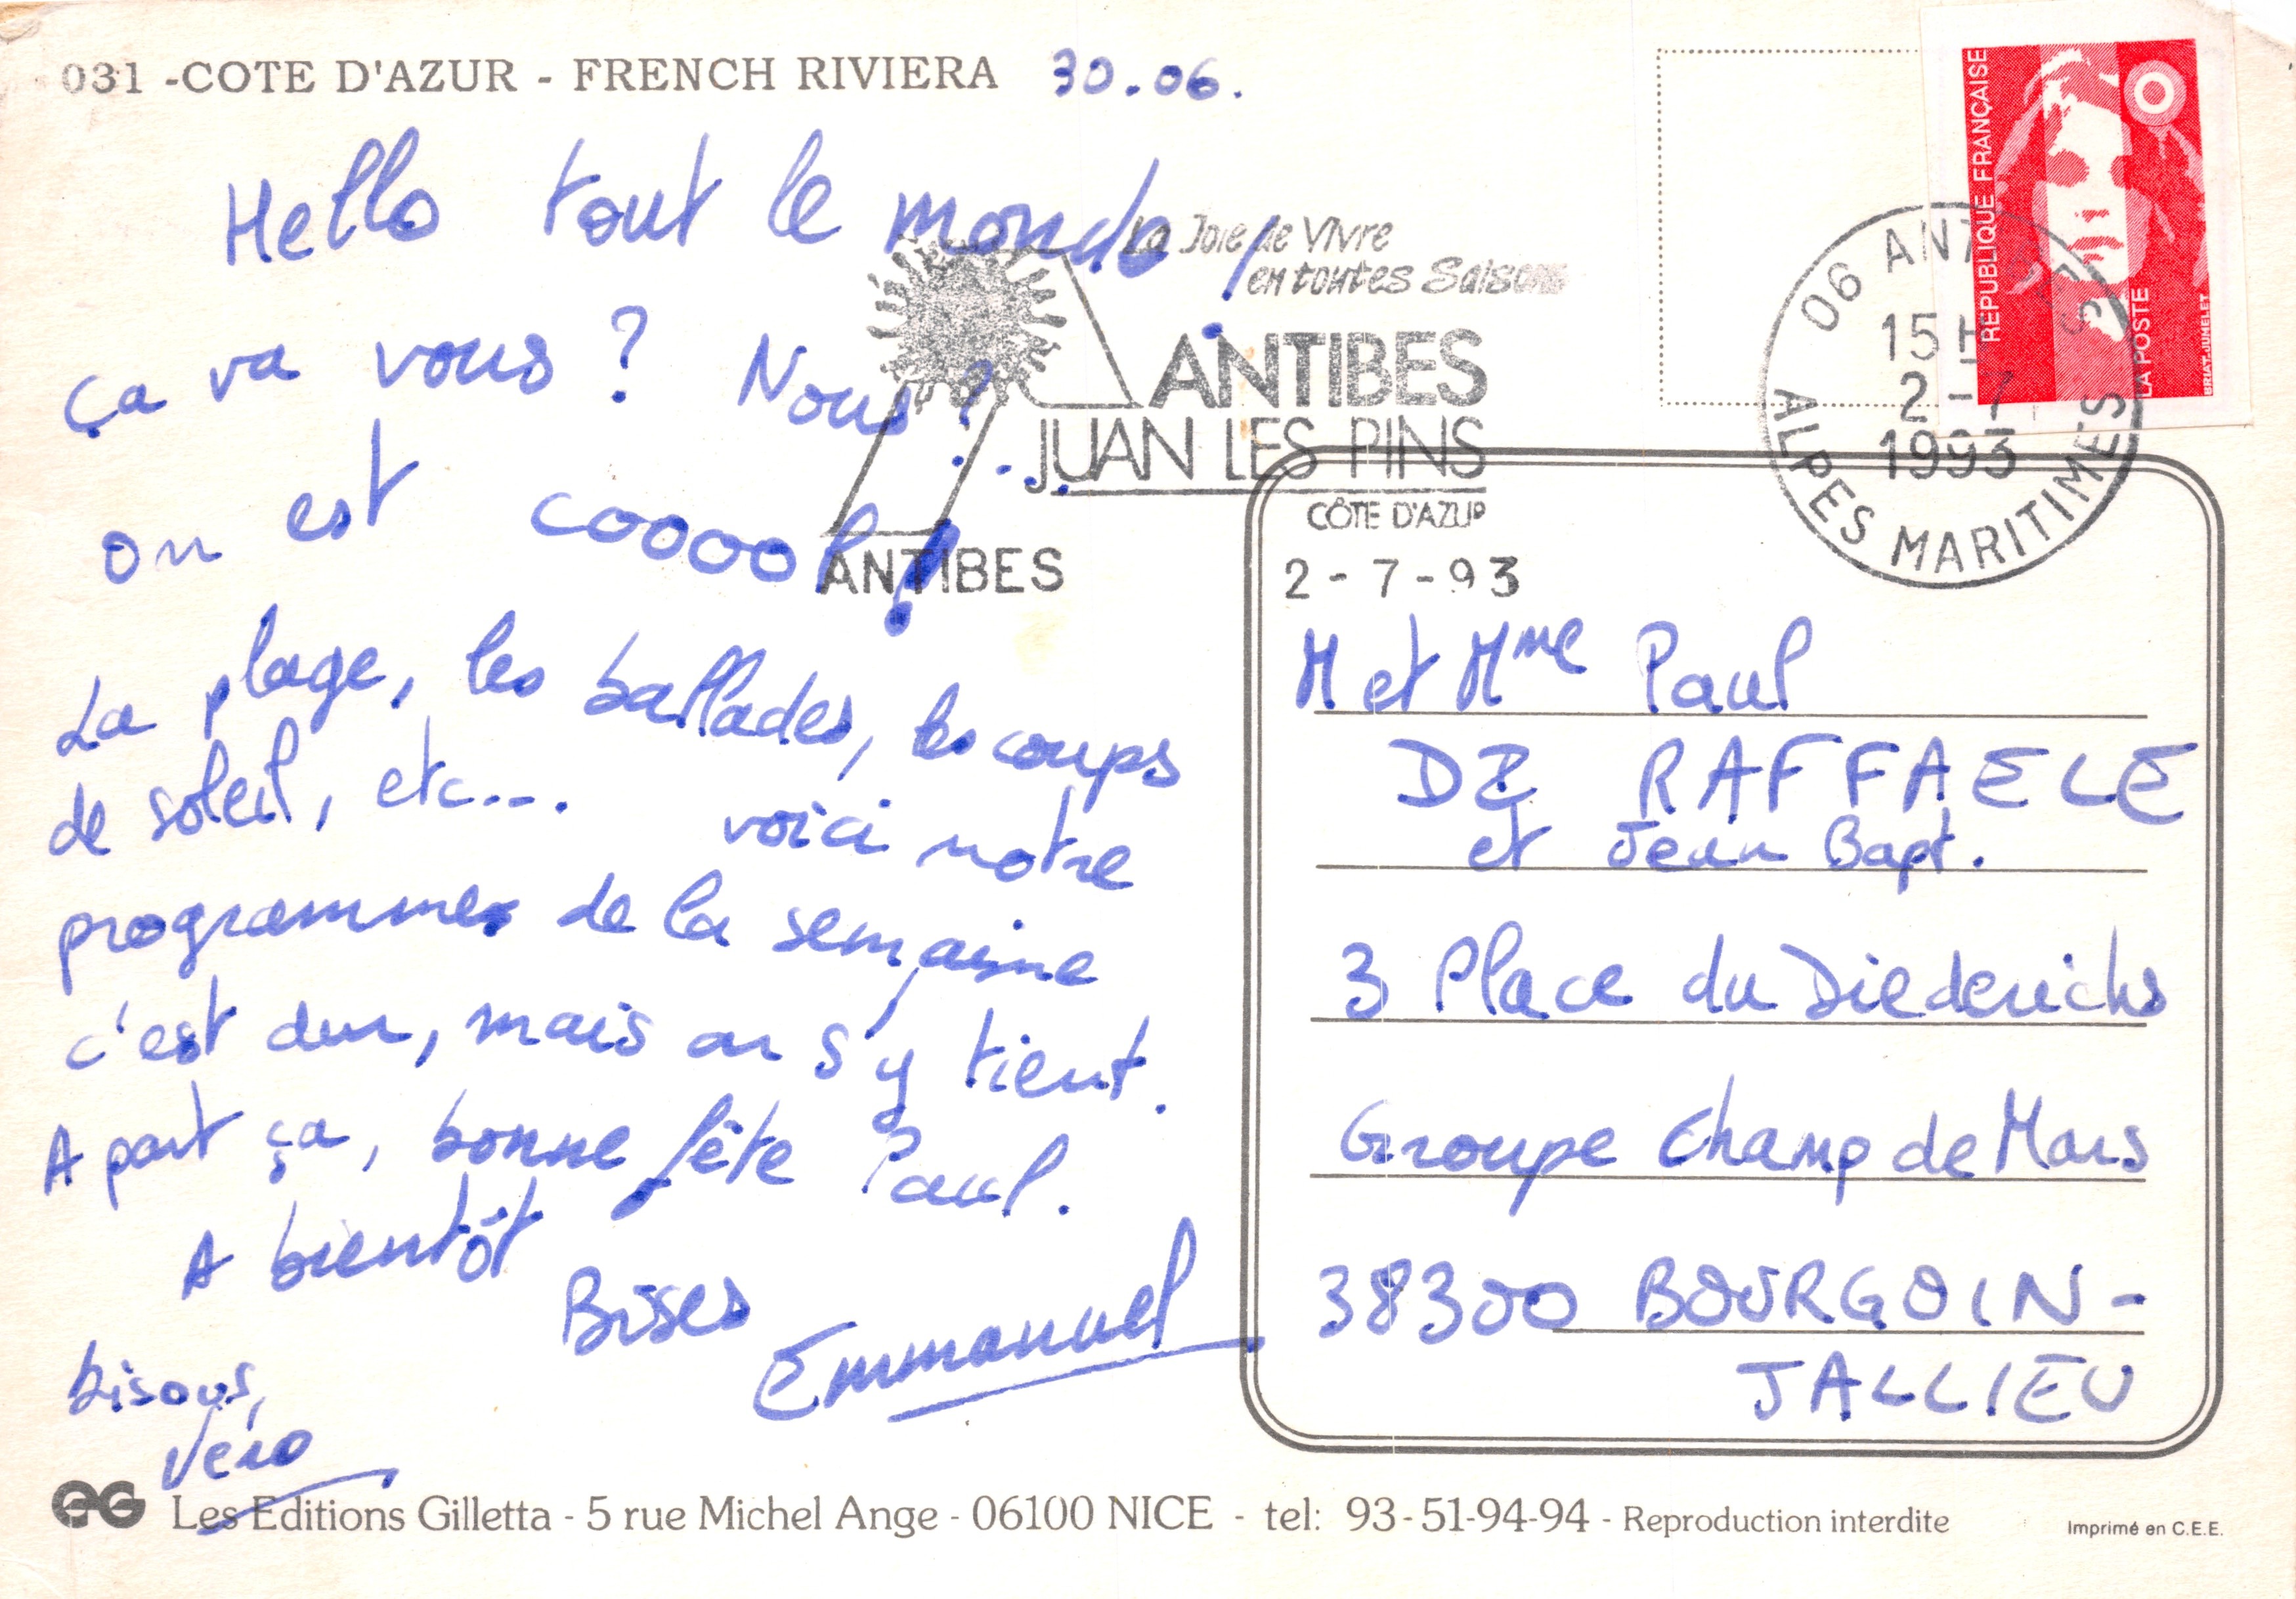 031 -COTE D'AZUR - FRENCH RIVIERA 30.06.
Hello tout le monde!
ça va vous ? Nous ?...
on est cooool !
La plage, les ballades, les coups
de soleil, etc... voici notre
programme de la semaine
c'est dur, mais on s'y tient.
A part ça, bonne fête Paul.
A bientôt
Bises
Emmanuel
bisous,
Véro
La Joie de Vivre
en toutes Saisons
ANTIBES
JUAN LES PINS
CÔTE D'AZUR
ANTIBES
2-7-93
REPUBLIQUE FRANÇAISE
LA POSTE
BRIAT. JUMELET
06 ANTIBES
15H
2-7
1993
ALPES MARITIMES
M et Mme Paul
DI RAFFAELE
et Jean Bapt.
3 Place du Diederichs
Groupe Champ de Mars
38300 BOURGOIN-
JALLIEU
EG Les Editions Gilletta - 5 rue Michel Ange - 06100 NICE - tel: 93-51-94-94 - Reproduction interdite
Imprimé en C.E.E.